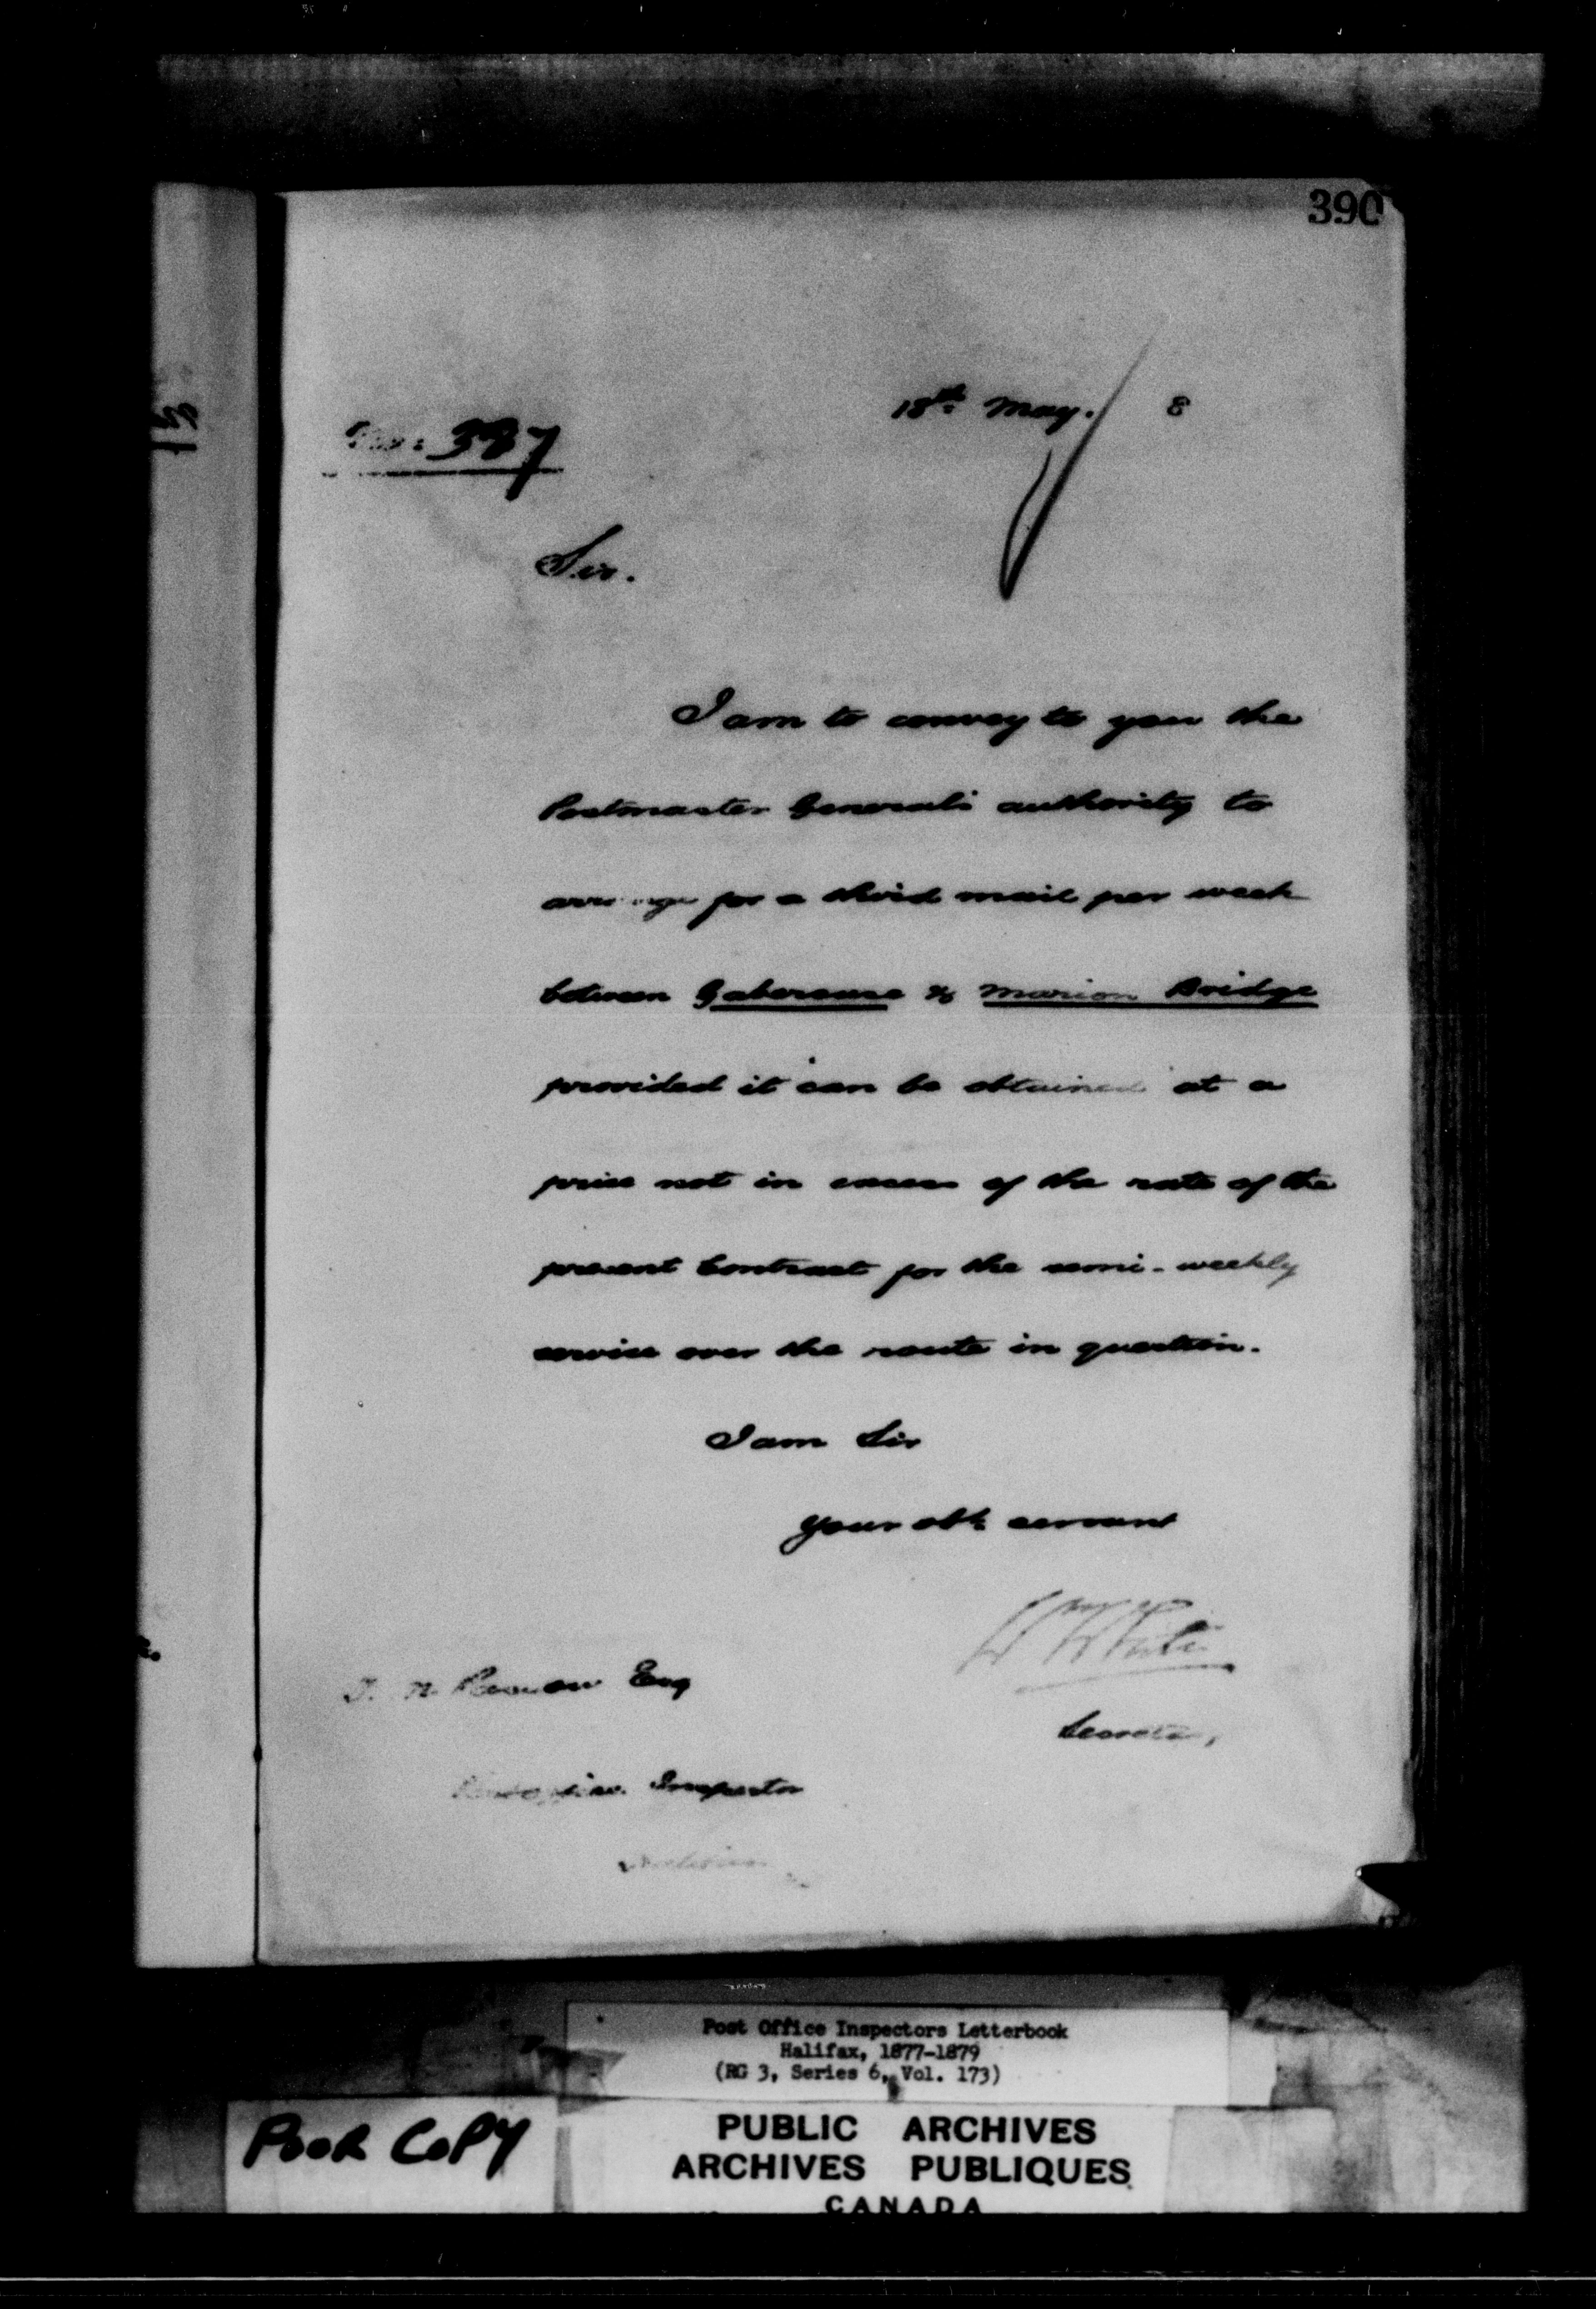 390
18th May. 8
No: 387
Sir.
I am to convey to you the
Postmaster General's authority to
arrange for a third mail per week
between Gabarouse & Marion Bridge
provided it can be obtained at a
price not in excess of the rate of the
present Contract for the semi-weekly
service over the route in question.
I am Sir
Your obt servant
W White
Secretary
Esq
Inspector
Post Office Inspectors Letterbook
Halifax, 1877-1879
(RG 3, Series 6, Vol. 173)
POOR COPY
PUBLIC ARCHIVES
ARCHIVES PUBLIQUES
CANADA